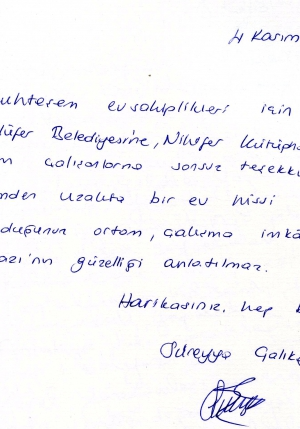 4 Kasım
uhteşem evsahiplikleri için
lüfer Belediyesine, Nilüfer Kütüpha
m çalışanlarına sonsuz teşekkü
mden uzakta bir ev hissi
duğunuz ortam, çalışma imkâ
azı'nın güzelliği anlatılmaz.
Harikasınız, hep
Süreyya Çalık